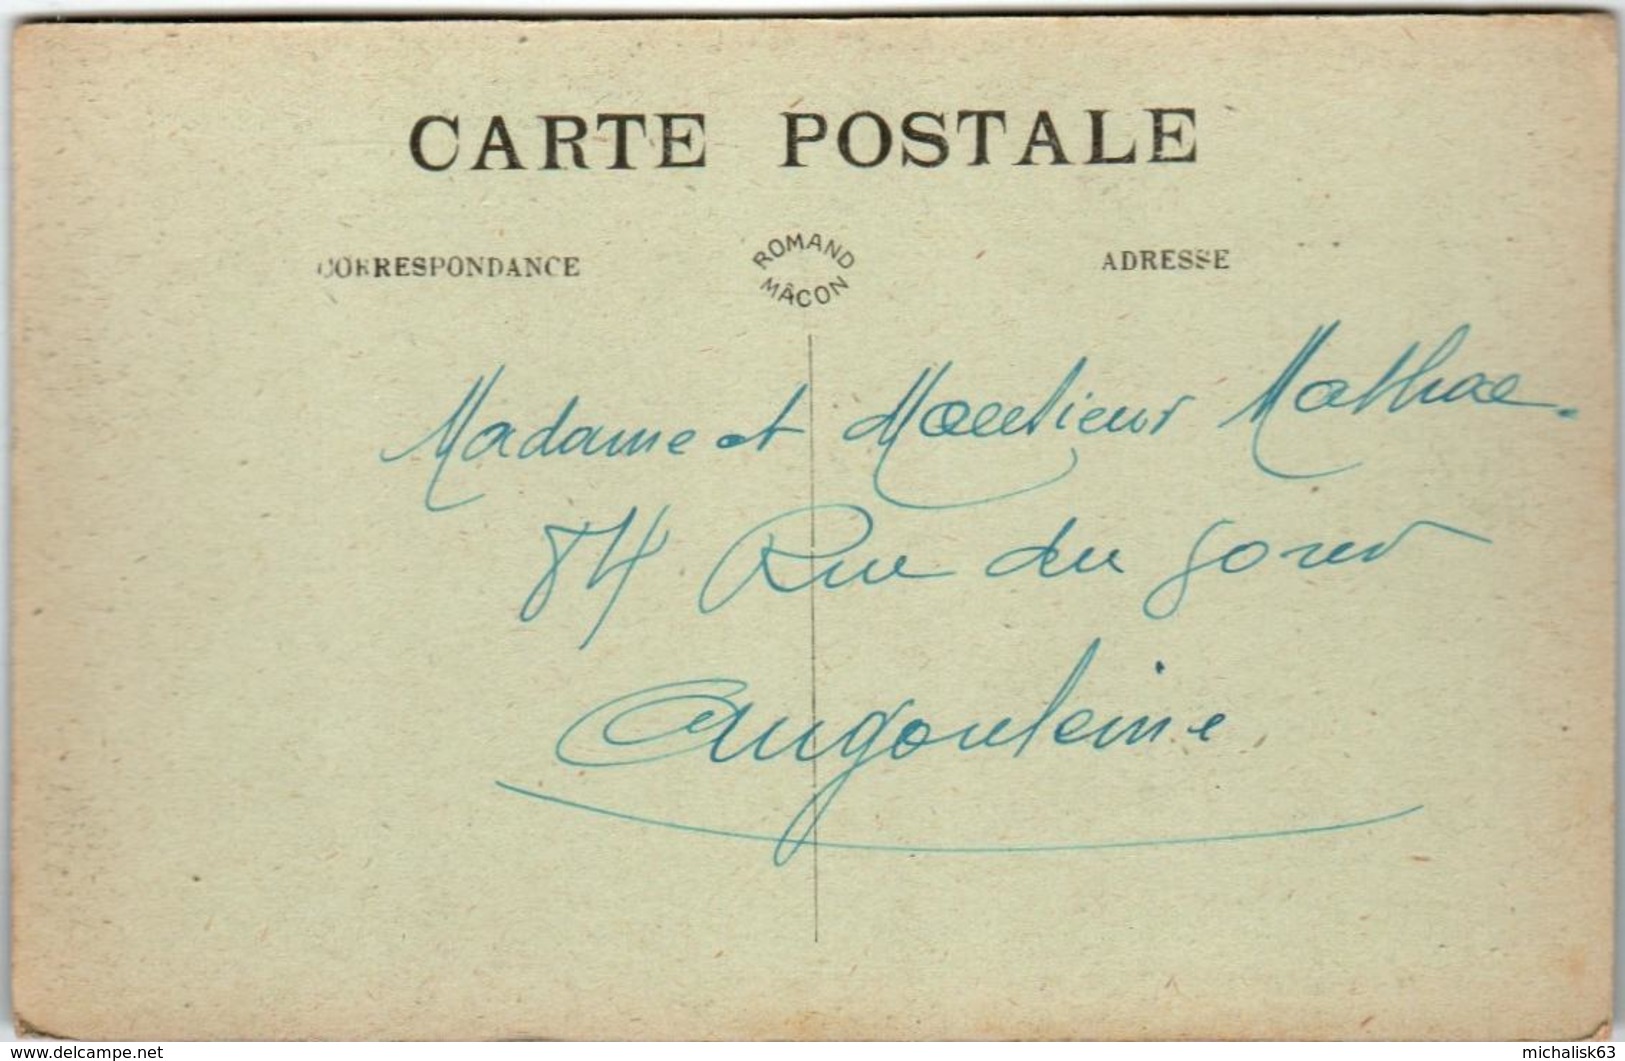 CARTE POSTALE
CORRESPONDANCE
ROMAND
MÂCON
ADRESSE
Madame et Monsieur
84 Rue du
Angouleme
www.delcampe.net
michalisk63